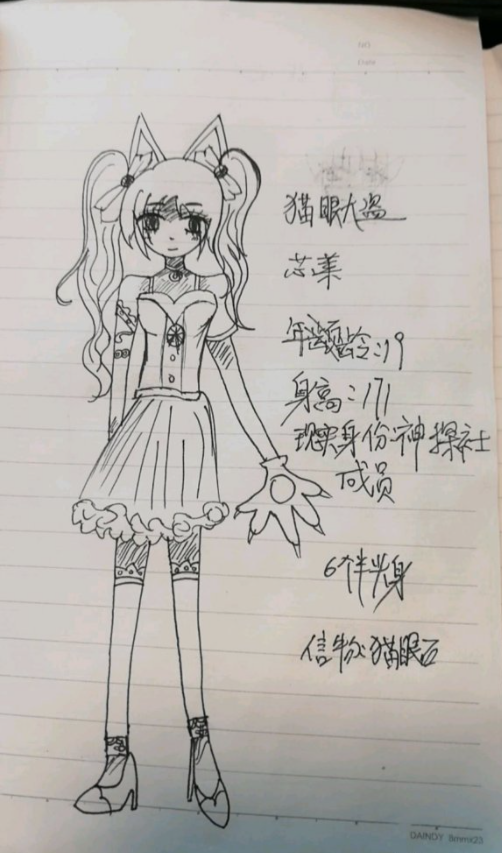 NO.
Date
猫眼大盗
芯莱
年龄:19
身高:171
现实身份:神探社
成员
6个伴身
信物:猫眼石
GAINDY